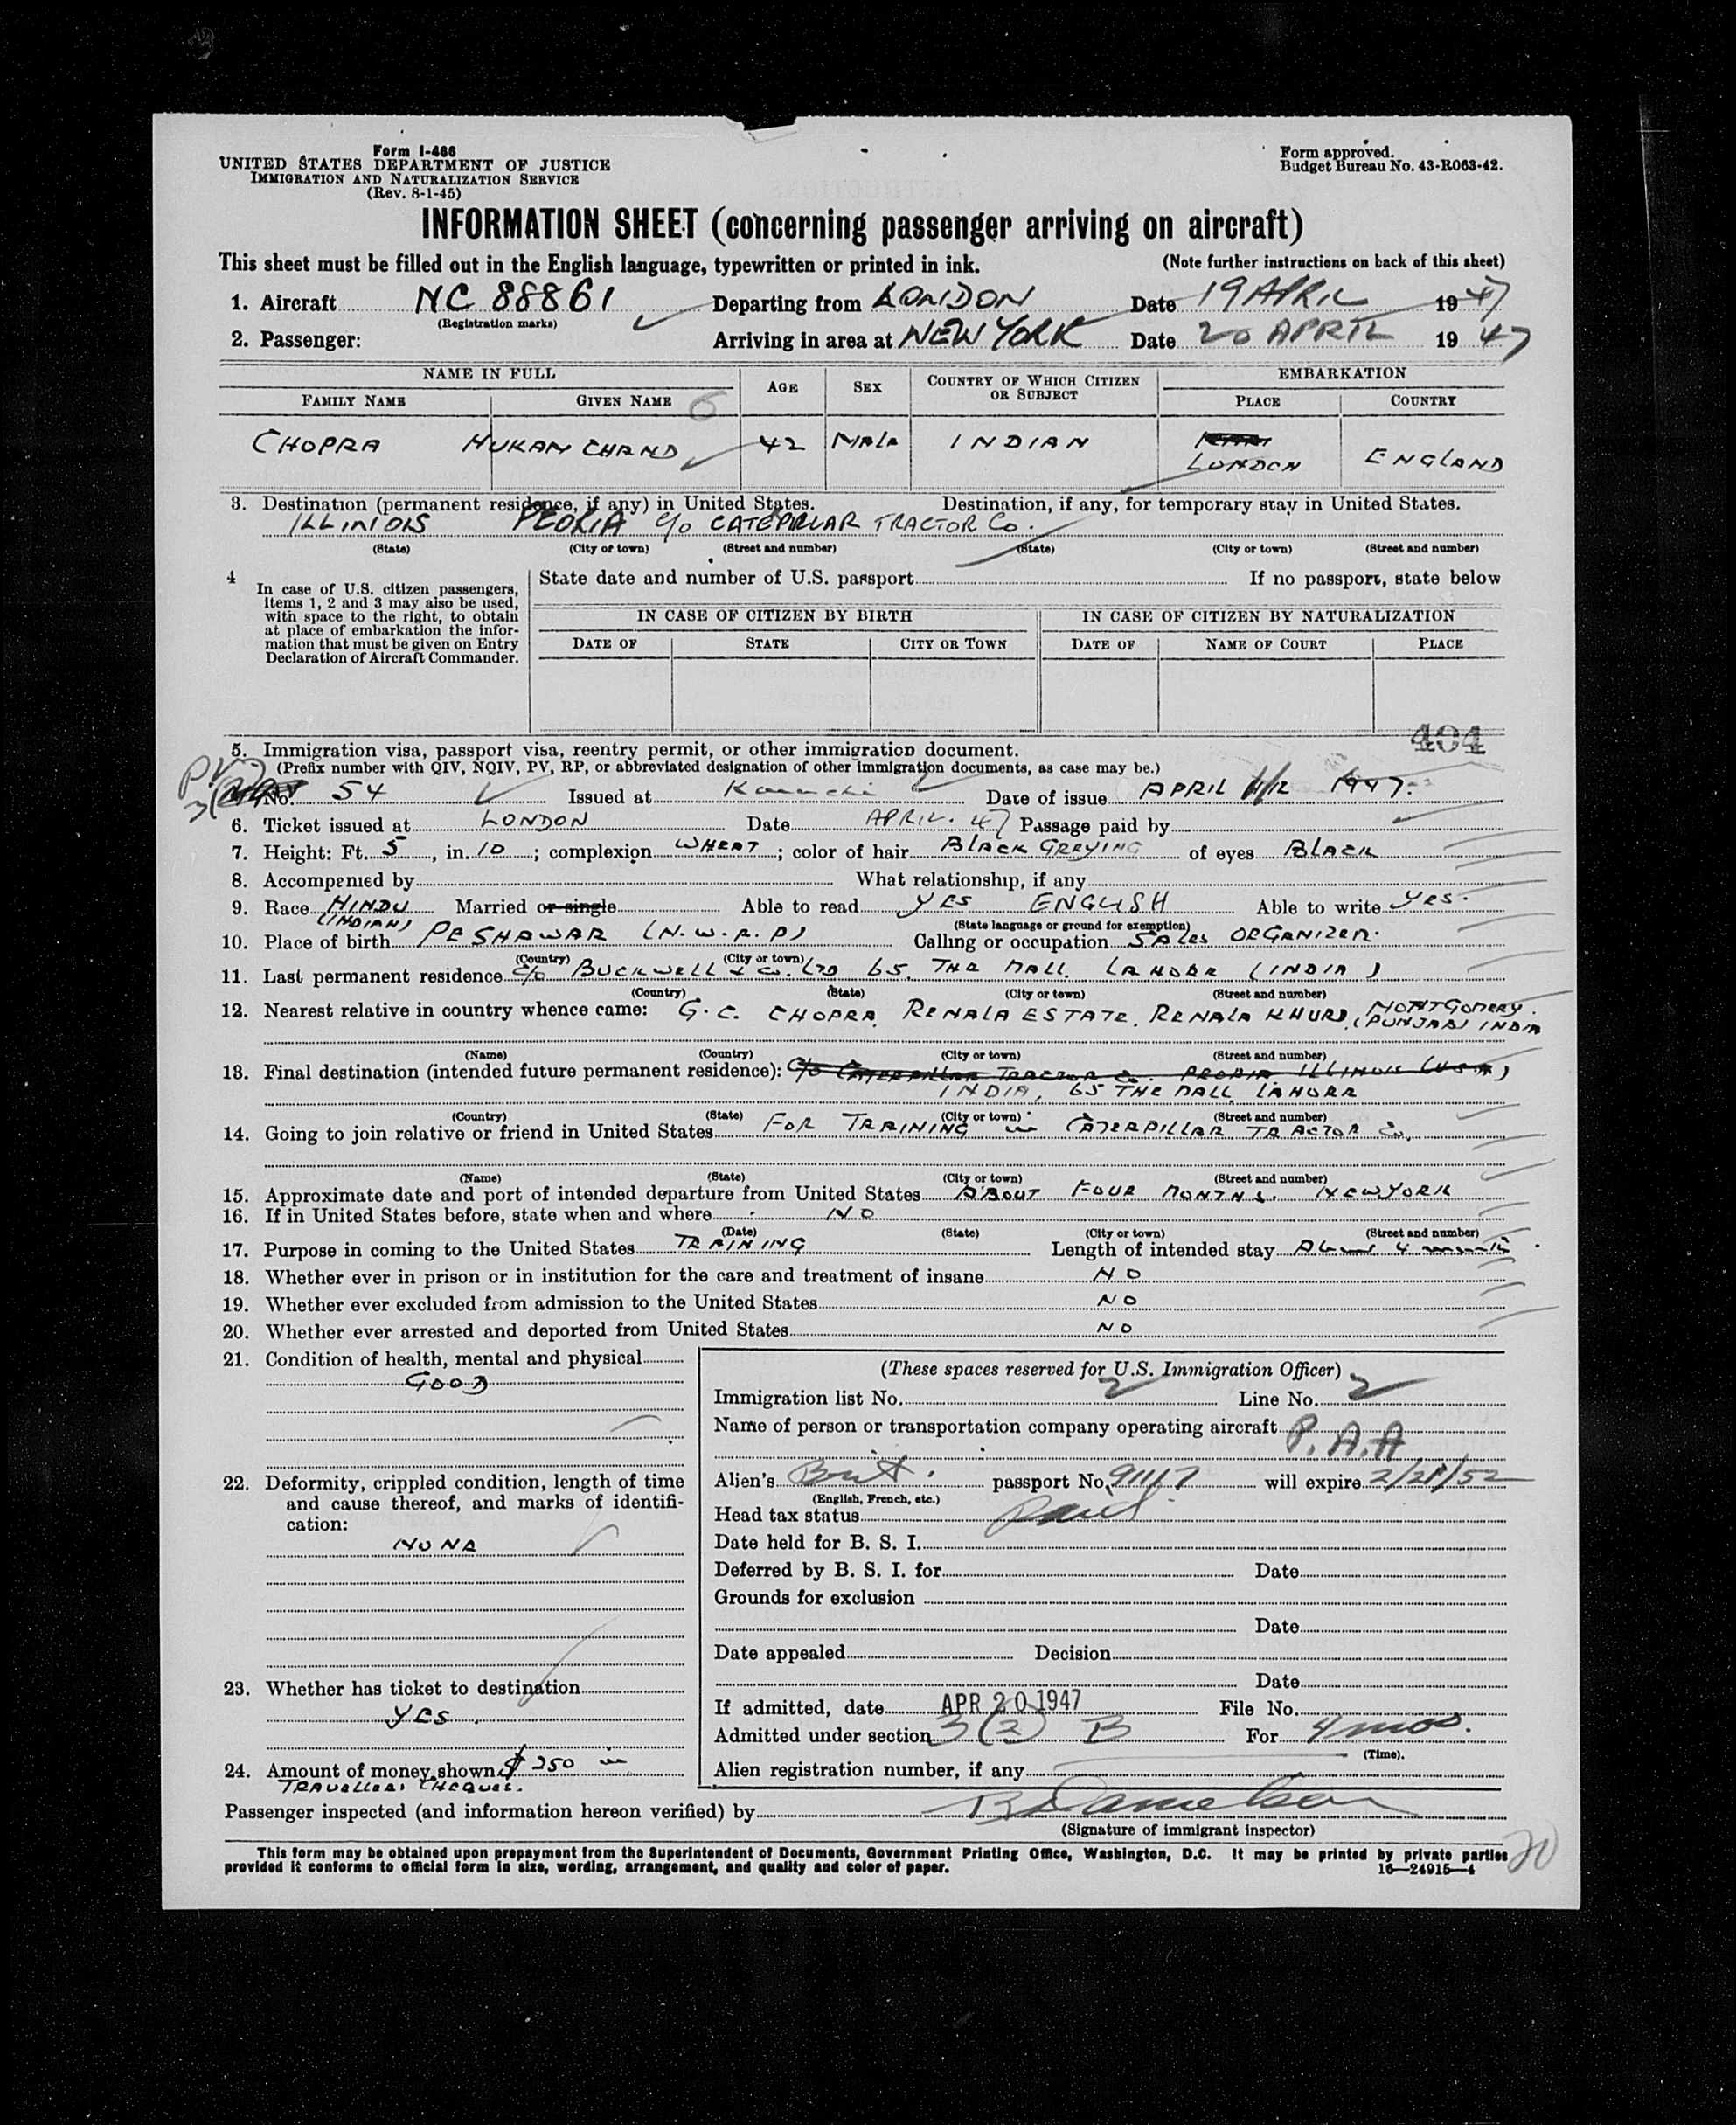 Form I-466
UNITED STATES DEPARTMENT OF JUSTICE
IMMIGRATION AND NATURALIZATION SERVICE
(Rev. 8-1-45)
Form approved.
Budget Bureau No. 43-R063-42.
INFORMATION SHEET (concerning passenger arriving on aircraft)
This sheet must be filled out in the English language, typewritten or printed in ink. (Note further instructions on back of this sheet)
1. Aircraft NC 88861 Departing from LONDON Date 19 APRIL 1947
(Registration marks)
2. Passenger: Arriving in area at NEW YORK Date 20 APRIL 1947
NAME IN FULL AGE SEX COUNTRY OF WHICH CITIZEN OR SUBJECT EMBARKATION
FAMILY NAME GIVEN NAME 6 PLACE COUNTRY
CHOPRA HUKAM CHAND 42 Male INDIAN LONDON ENGLAND
3. Destination (permanent residence, if any) in United States. Destination, if any, for temporary stay in United States.
ILLINOIS PEORIA c/o CATEPILLAR TRACTOR Co.
(State) (City or town) (Street and number) (State) (City or town) (Street and number)
4 In case of U.S. citizen passengers, items 1, 2 and 3 may also be used, with space to the right, to obtain at place of embarkation the information that must be given on Entry Declaration of Aircraft Commander.
State date and number of U.S. passport If no passport, state below
IN CASE OF CITIZEN BY BIRTH IN CASE OF CITIZEN BY NATURALIZATION
DATE OF STATE CITY OR TOWN DATE OF NAME OF COURT PLACE
404
5. Immigration visa, passport visa, reentry permit, or other immigration document.
(Prefix number with QIV, NQIV, PV, RP, or abbreviated designation of other immigration documents, as case may be.)
PV 3(2) No. 54 Issued at Karachi Date of issue APRIL 11/12 1947.
6. Ticket issued at LONDON Date APRIL. 47 Passage paid by
7. Height: Ft. 5, in. 10; complexion WHEAT; color of hair BLACK GREYING of eyes BLACK
8. Accompanied by What relationship, if any
9. Race HINDU (INDIAN) Married or single Able to read YES ENGLISH Able to write Yes.
(State language or ground for exemption)
10. Place of birth PESHAWAR (N.W.F.P) Calling or occupation SALES ORGANIZER.
(Country) (City or town)
11. Last permanent residence c/o BUCKWELL & Co. LTD 65. THE MALL. LAHORE (INDIA)
(Country) (State) (City or town) (Street and number)
12. Nearest relative in country whence came: G. C. CHOPRA, RENALA ESTATE. RENALA KHURD, MONTGOMERY. (PUNJAB) INDIA
(Name) (Country) (City or town) (Street and number)
13. Final destination (intended future permanent residence): c/o CATERPILLAR TRACTOR Co. PEORIA ILLINOIS (USA)
INDIA, 65 THE MALL LAHORE
(Country) (State) (City or town) (Street and number)
14. Going to join relative or friend in United States FOR TRAINING in CATERPILLAR TRACTOR Co.
(Name) (State) (City or town) (Street and number)
15. Approximate date and port of intended departure from United States ABOUT FOUR MONTHS. NEWYORK
16. If in United States before, state when and where NO
(Date) (State) (City or town) (Street and number)
17. Purpose in coming to the United States TRAINING Length of intended stay About 4 months
18. Whether ever in prison or in institution for the care and treatment of insane NO
19. Whether ever excluded from admission to the United States NO
20. Whether ever arrested and deported from United States NO
21. Condition of health, mental and physical
GOOD
22. Deformity, crippled condition, length of time and cause thereof, and marks of identification:
NONE
23. Whether has ticket to destination
YES.
24. Amount of money shown $ 250 in
TRAVELLERS CHEQUES.
(These spaces reserved for U.S. Immigration Officer)
Immigration list No. 2 Line No. 2
Name of person or transportation company operating aircraft P.A.A
Alien's Brit. passport No. 91117 will expire 2/21/52
(English, French, etc.)
Head tax status Paid
Date held for B. S. I.
Deferred by B. S. I. for Date
Grounds for exclusion
Date
Date appealed Decision
Date
If admitted, date APR 20 1947 File No.
Admitted under section 3(2) B For 4 mos.
(Time).
Alien registration number, if any
Passenger inspected (and information hereon verified) by
(Signature of immigrant inspector)
20
This form may be obtained upon prepayment from the Superintendent of Documents, Government Printing Office, Washington, D.C. It may be printed by private parties
provided it conforms to official form in size, wording, arrangement, and quality and color of paper. 16—24915-4